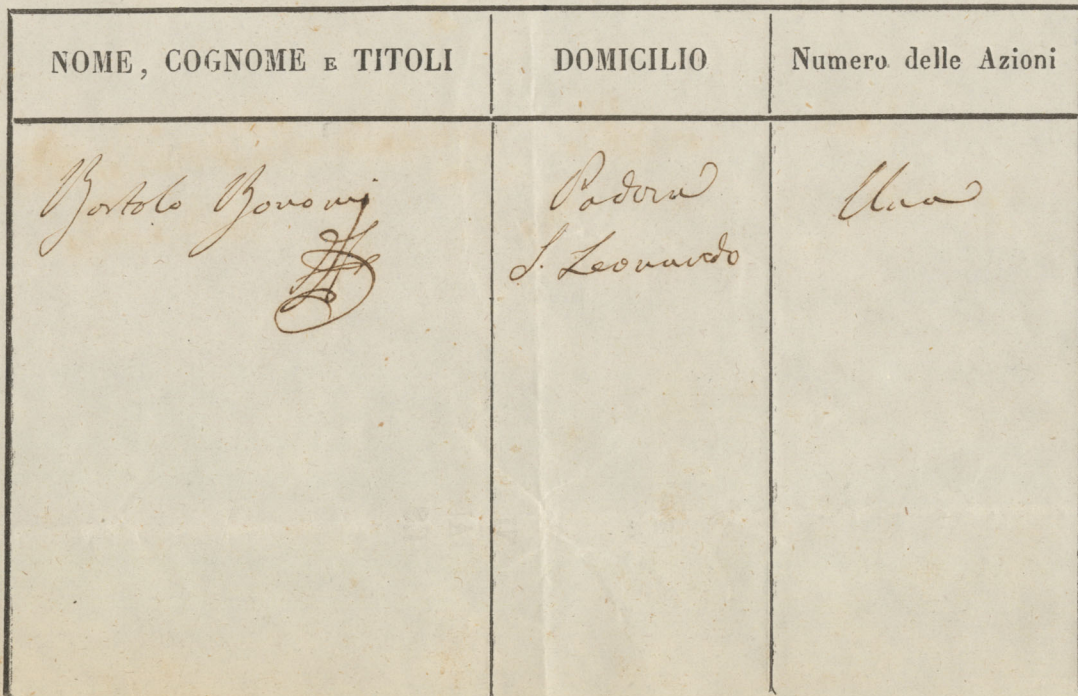 NOME, COGNOME E TITOLI
DOMICILIO
Numero delle Azioni
Bortolo Bonomi
Padova
S. Leonardo
Una